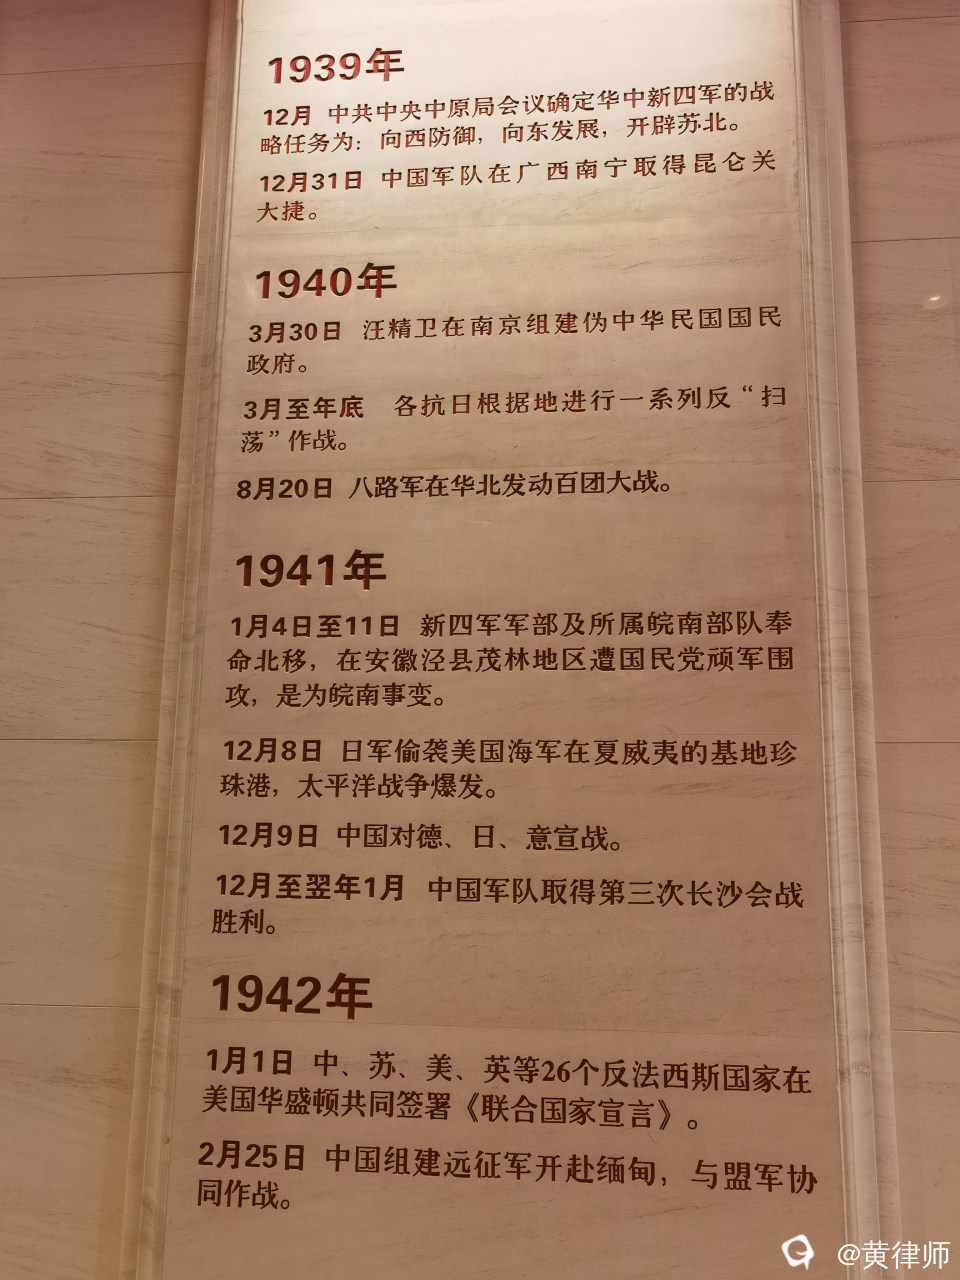 1939年
12月 中共中央中原局会议确定华中新四军的战
略任务为：向西防御，向东发展，开辟苏北。
12月31日 中国军队在广西南宁取得昆仑关
大捷。
1940年
3月30日 汪精卫在南京组建伪中华民国国民
政府。
3月至年底 各抗日根据地进行一系列反“扫
荡”作战。
8月20日 八路军在华北发动百团大战。
1941年
1月4日至11日 新四军军部及所属皖南部队奉
命北移，在安徽泾县茂林地区遭国民党顽军围
攻，是为皖南事变。
12月8日 日军偷袭美国海军在夏威夷的基地珍
珠港，太平洋战争爆发。
12月9日 中国对德、日、意宣战。
12月至翌年1月 中国军队取得第三次长沙会战
胜利。
1942年
1月1日 中、苏、美、英等26个反法西斯国家在
美国华盛顿共同签署《联合国家宣言》。
2月25日 中国组建远征军开赴缅甸，与盟军协
同作战。
@黄律师